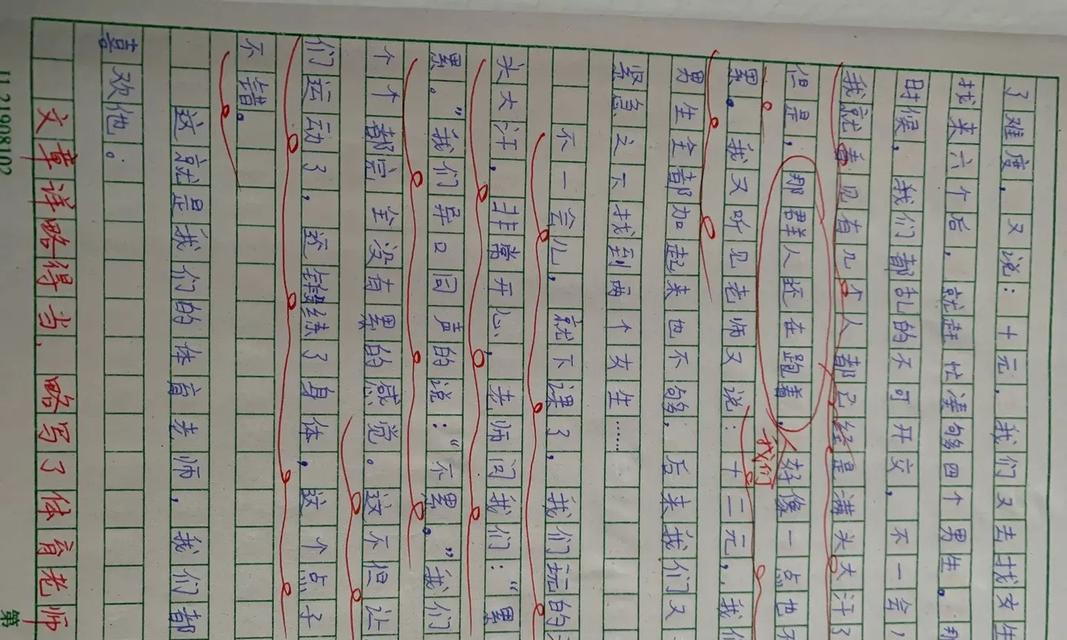 了难度，又说：十元，我们又去找女生
找来六个后，就赶忙凑够四个男生。
时候，我们都乱的不可开交，不一会儿
我就看见有几个人都已经是满头大汗了
但是，那群人还在跑着，好像一点也不
我们
累。我又听见老师又说：十二元，我们
男生全都加起来也不够，后来我们又
紧急之下找到两个女生……
不一会儿，就下课了，我们玩的
头大汗，非常开心，老师问我们：“累
累。”我们异口同声的说：“不累。”我们
个个都完全没有累的感觉。这不但让
们运动了，还锻练了身体，这个点子
不错。
这就是我们的体育老师，我们都
喜欢他。
文章详略得当，略写了体育老师
第